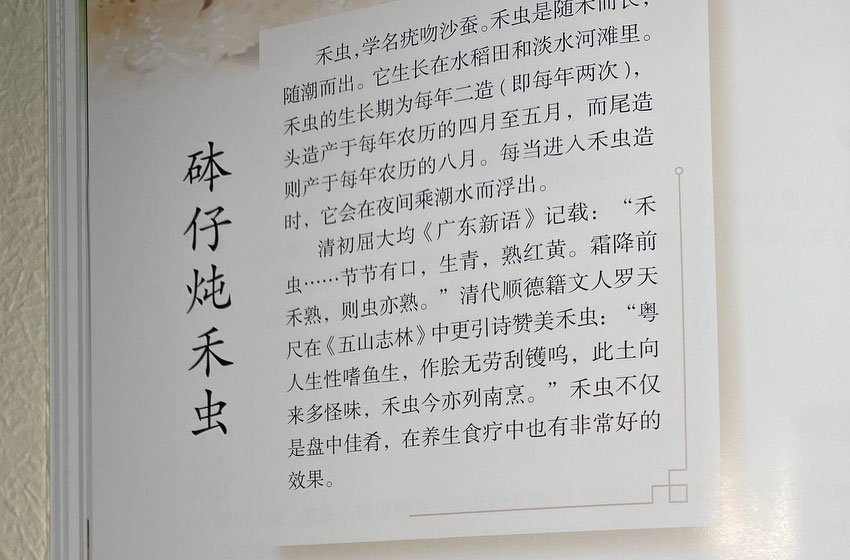 钵仔炖禾虫
禾虫，学名疣吻沙蚕。禾虫是随禾而长，
随潮而出。它生长在水稻田和淡水河滩里。
禾虫的生长期为每年二造（即每年两次），
头造产于每年农历的四月至五月，而尾造
则产于每年农历的八月。每当进入禾虫造
时，它会在夜间乘潮水而浮出。
清初屈大均《广东新语》记载：“禾
虫……节节有口，生青，熟红黄。霜降前
禾熟，则虫亦熟。”清代顺德籍文人罗天
尺在《五山志林》中更引诗赞美禾虫：“粤
人生性嗜鱼生，作脍无劳刮镬鸣，此土向
来多怪味，禾虫今亦列南烹。”禾虫不仅
是盘中佳肴，在养生食疗中也有非常好的
效果。